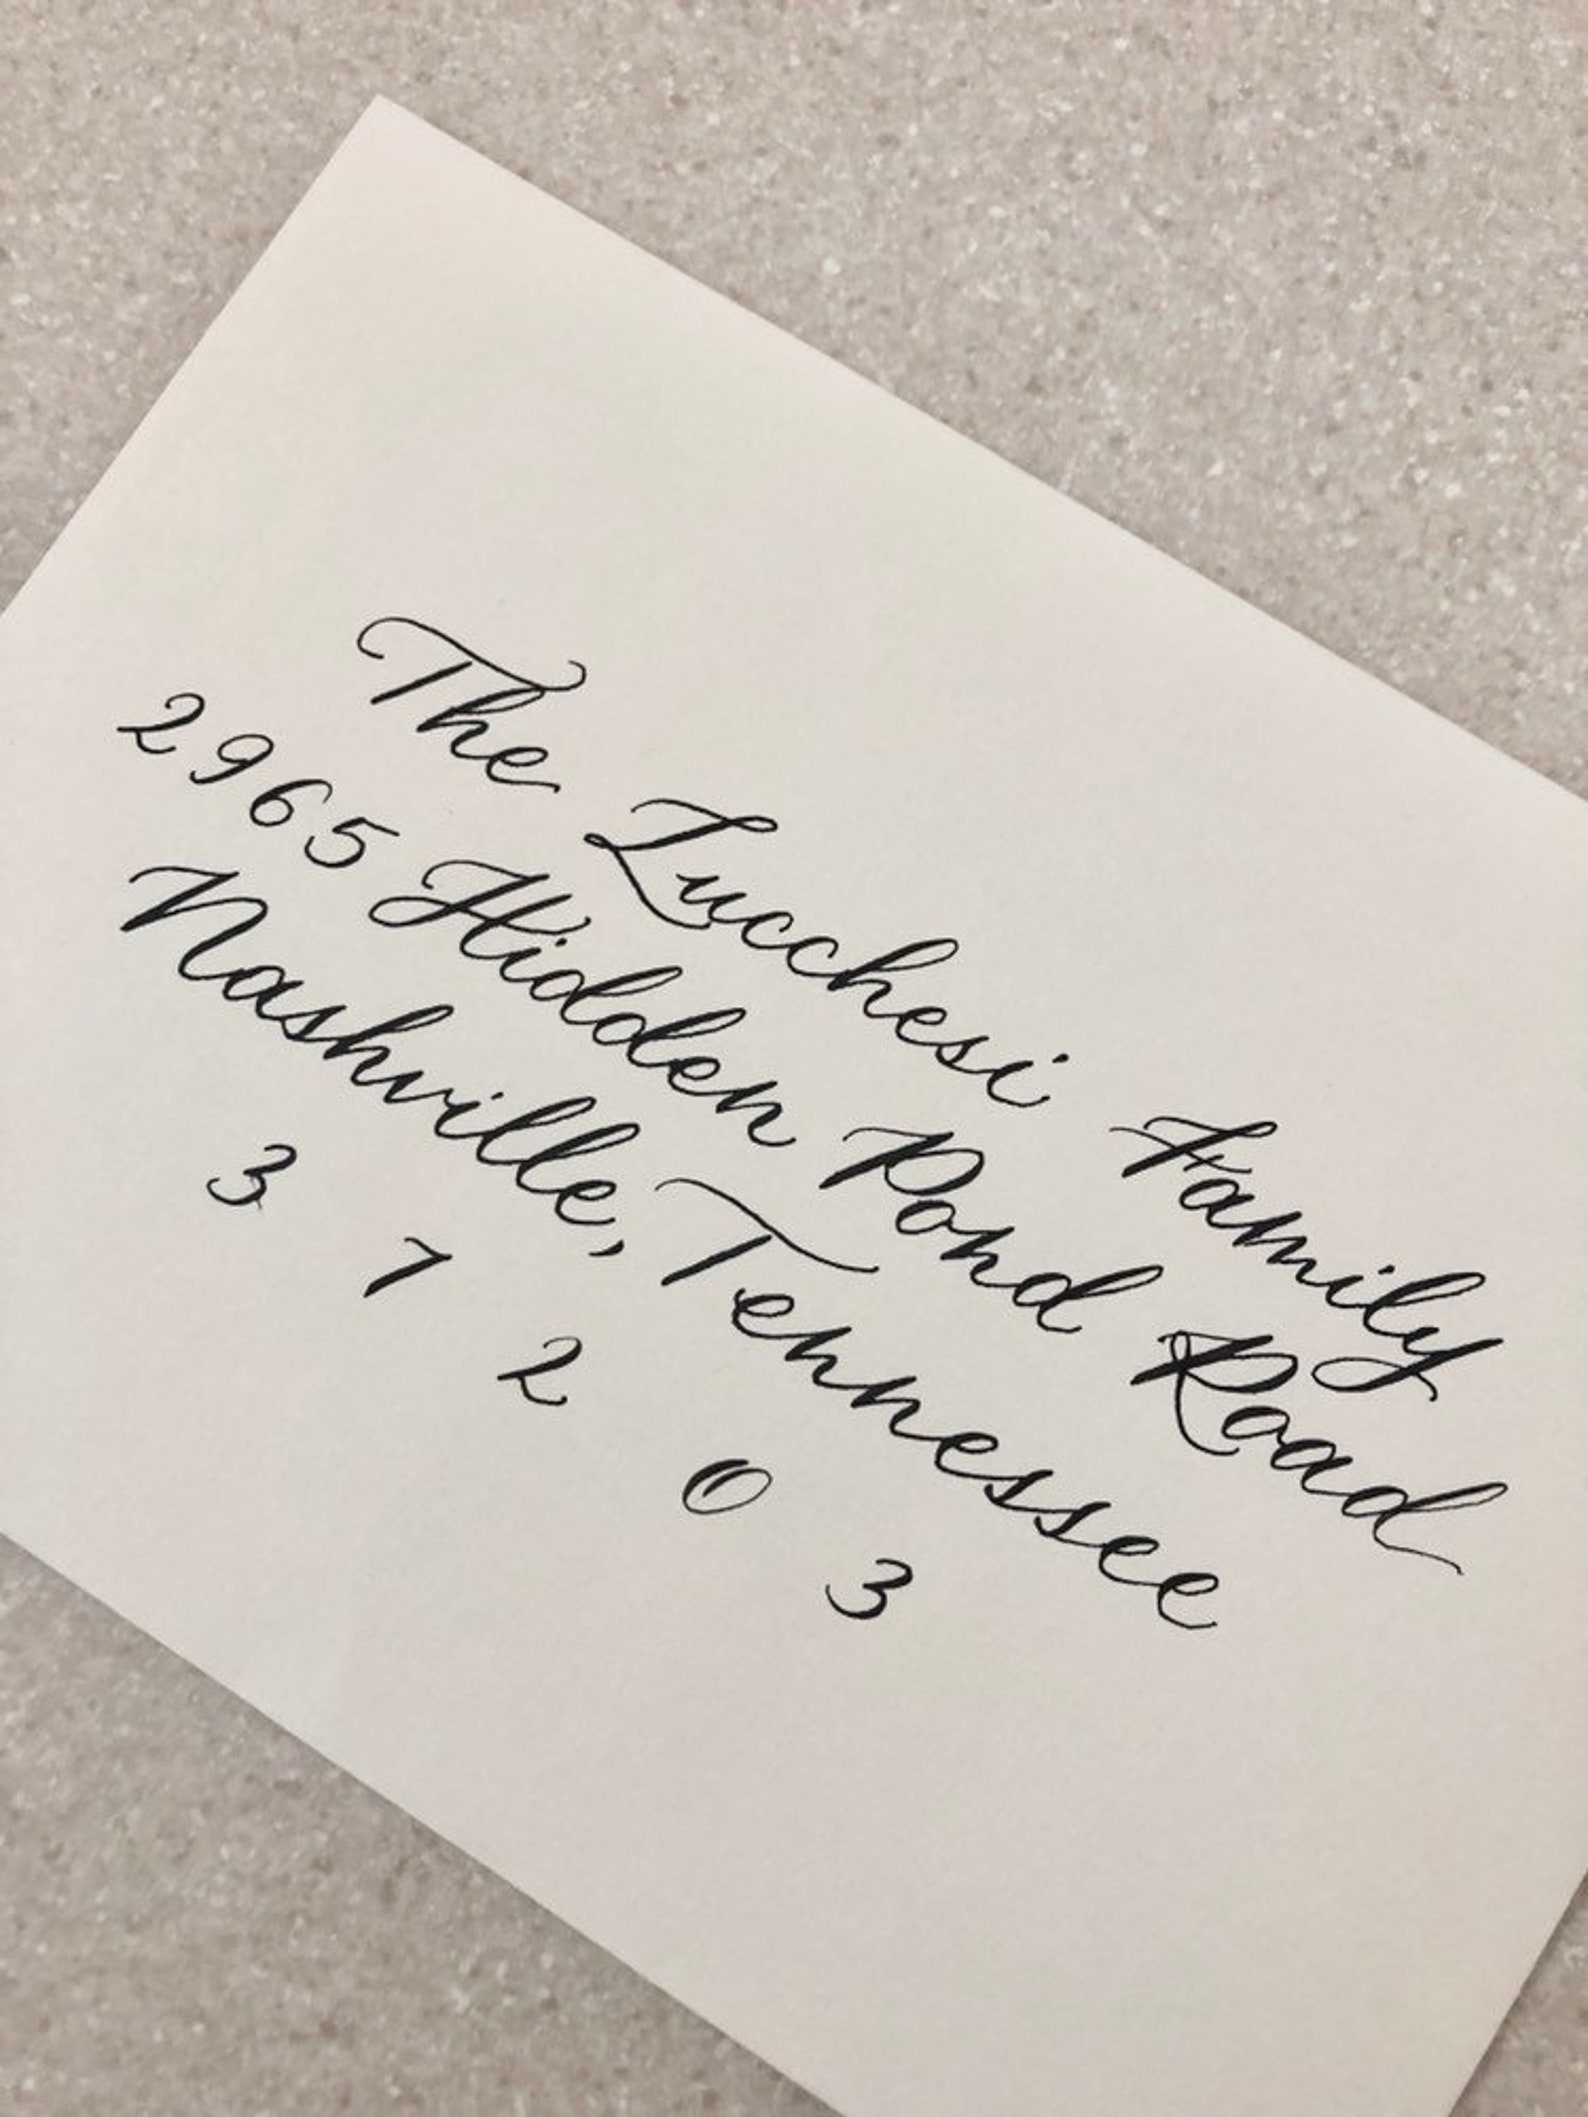 The Lucchesi Family
2965 Hidden Pond Road
Nashville, Tennessee
3 7 2 0 3